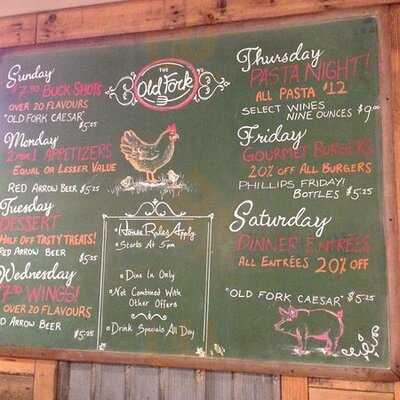 Sunday
BUCK SHOTS
OVER 20 FLAVOURS
"OLD FORK CAESAR"
$5.25
Monday
2 FOR 1 APPETIZERS
EQUAL OR LESSER VALUE
RED ARROW BEER $5.25
Tuesday
DESSERT
HALF OFF TASTY TREATS!
RED ARROW BEER $5.25
Wednesday
WINGS!
OVER 20 FLAVOURS
RED ARROW BEER $5.25
THE
Old Fork
*House Rules Apply
*Starts At 5pm
*Dine In Only
*Not Combined With
Other Offers
*Drink Specials All Day
Thursday
PASTA NIGHT!
ALL PASTA $12
SELECT WINES
NINE OUNCES $9.00
Friday
GOURMET BURGERS
20% OFF ALL BURGERS
PHILLIPS FRIDAY!
BOTTLES $5.25
Saturday
DINNER ENTRÉES
ALL ENTRÉES 20% OFF
"OLD FORK CAESAR" $5.25